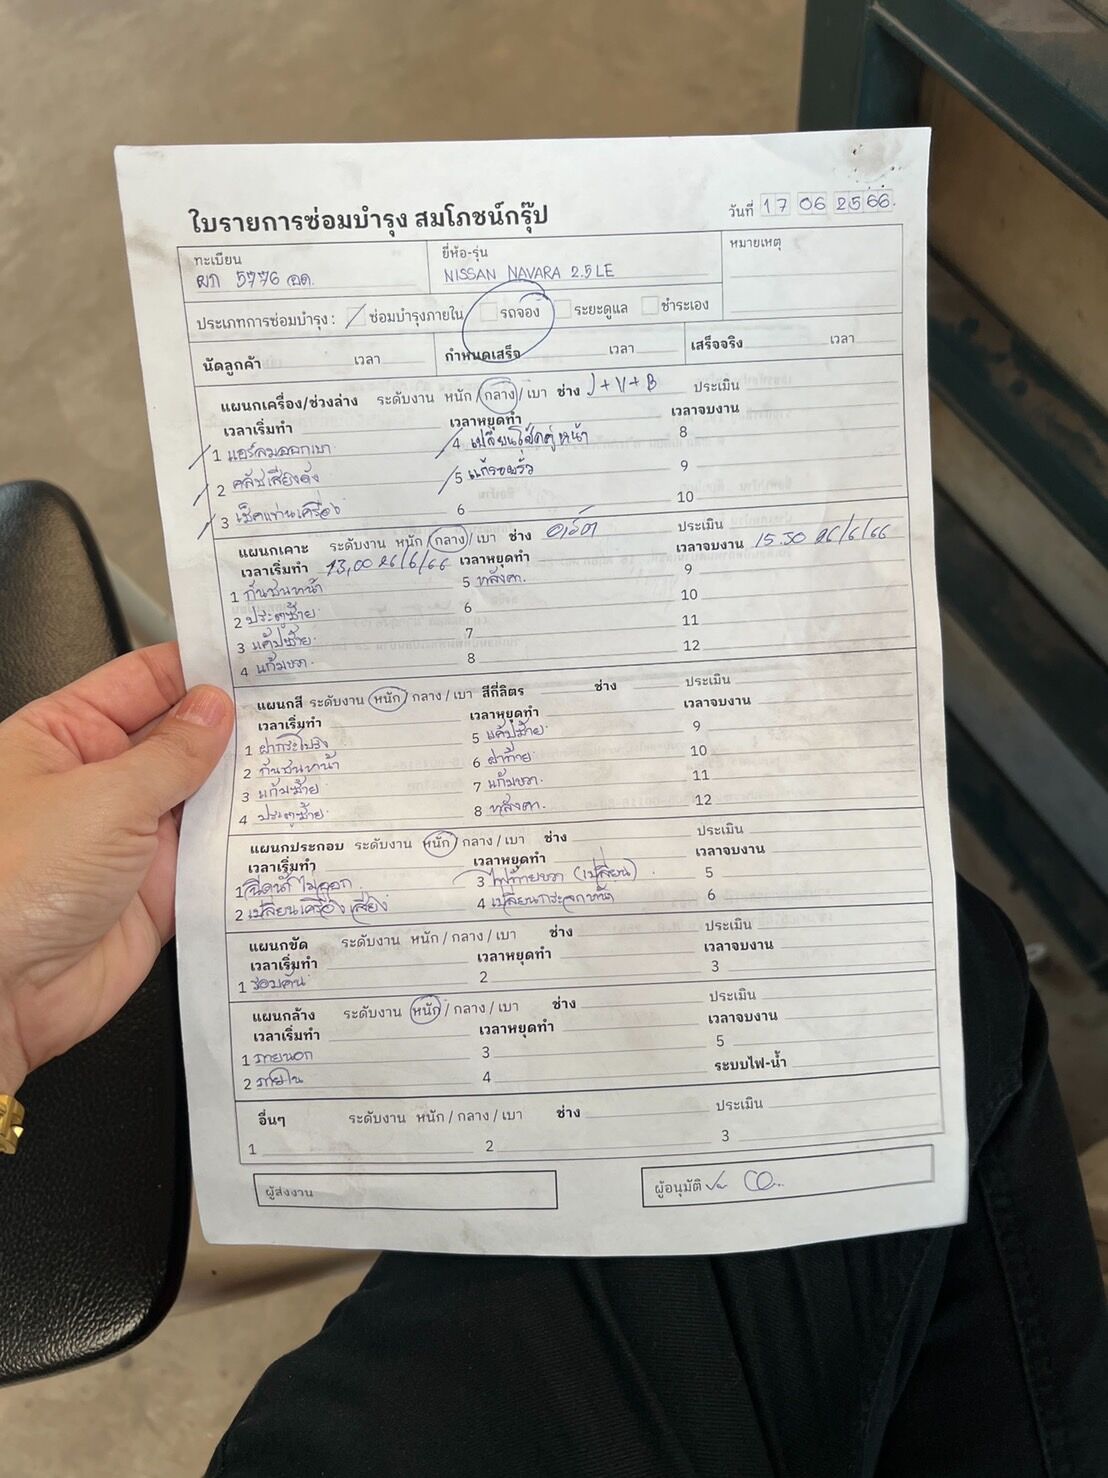 ใบรายการซ่อมบำรุง สมโภชน์กรุ๊ป
วันที่ 17 06 2566
ทะเบียน
ผก 5776 อด.
ยี่ห้อ-รุ่น
NISSAN NAVARA 2.5LE
หมายเหตุ
ประเภทการซ่อมบำรุง : ซ่อมบำรุงภายใน รถจอง ระยะดูแล ชำระเอง
นัดลูกค้า เวลา กำหนดเสร็จ เวลา เสร็จจริง เวลา
แผนกเครื่อง/ช่วงล่าง ระดับงาน หนัก / กลาง / เบา ช่าง J + V + B ประเมิน
เวลาเริ่มทำ เวลาหยุดทำ เวลาจบงาน
1 แอร์ลมออกเบา 4 เปลี่ยนโช๊คคู่หน้า 8
2 คลัชเสียงดัง 5 แก้รอยรั่ว 9
3 เช็คแท่นเครื่อง 6 10
แผนกเคาะ ระดับงาน หนัก / กลาง / เบา ช่าง ประเมิน
เวลาเริ่มทำ 13,00 26/6/66 เวลาหยุดทำ เวลาจบงาน 15.30 26/6/66
1 กันชนหน้า 5 หลังคา. 9
2 ประตูซ้าย. 6 10
3 แค้ปซ้าย. 7 11
4 แก้มขวา. 8 12
แผนกสี ระดับงาน หนัก / กลาง / เบา สีกี่ลิตร ช่าง ประเมิน
เวลาเริ่มทำ เวลาหยุดทำ เวลาจบงาน
1 ฝากระโปรง 5 แค้ปซ้าย. 9
2 กันชนหน้า 6 ฝาท้าย. 10
3 แก้มซ้าย. 7 แก้มขวา. 11
4 ประตูซ้าย. 8 หลังคา. 12
แผนกประกอบ ระดับงาน หนัก / กลาง / เบา ช่าง ประเมิน
เวลาเริ่มทำ เวลาหยุดทำ เวลาจบงาน
1 ฉีดน้ำไม่ออก 3 ไฟท้ายขวา (เปลี่ยน) . 5
2 เปลี่ยนเครื่องเสียง 4 เปลี่ยนกระจกหน้า 6
แผนกขัด ระดับงาน หนัก / กลาง / เบา ช่าง ประเมิน
เวลาเริ่มทำ เวลาหยุดทำ เวลาจบงาน
1 รอบคัน 2 3
แผนกล้าง ระดับงาน หนัก / กลาง / เบา ช่าง ประเมิน
เวลาเริ่มทำ เวลาหยุดทำ เวลาจบงาน
1 ภายนอก 3 5
2 ภายใน 4 ระบบไฟ-น้ำ
อื่นๆ ระดับงาน หนัก / กลาง / เบา ช่าง ประเมิน
1 2 3
ผู้ส่งงาน
ผู้อนุมัติ